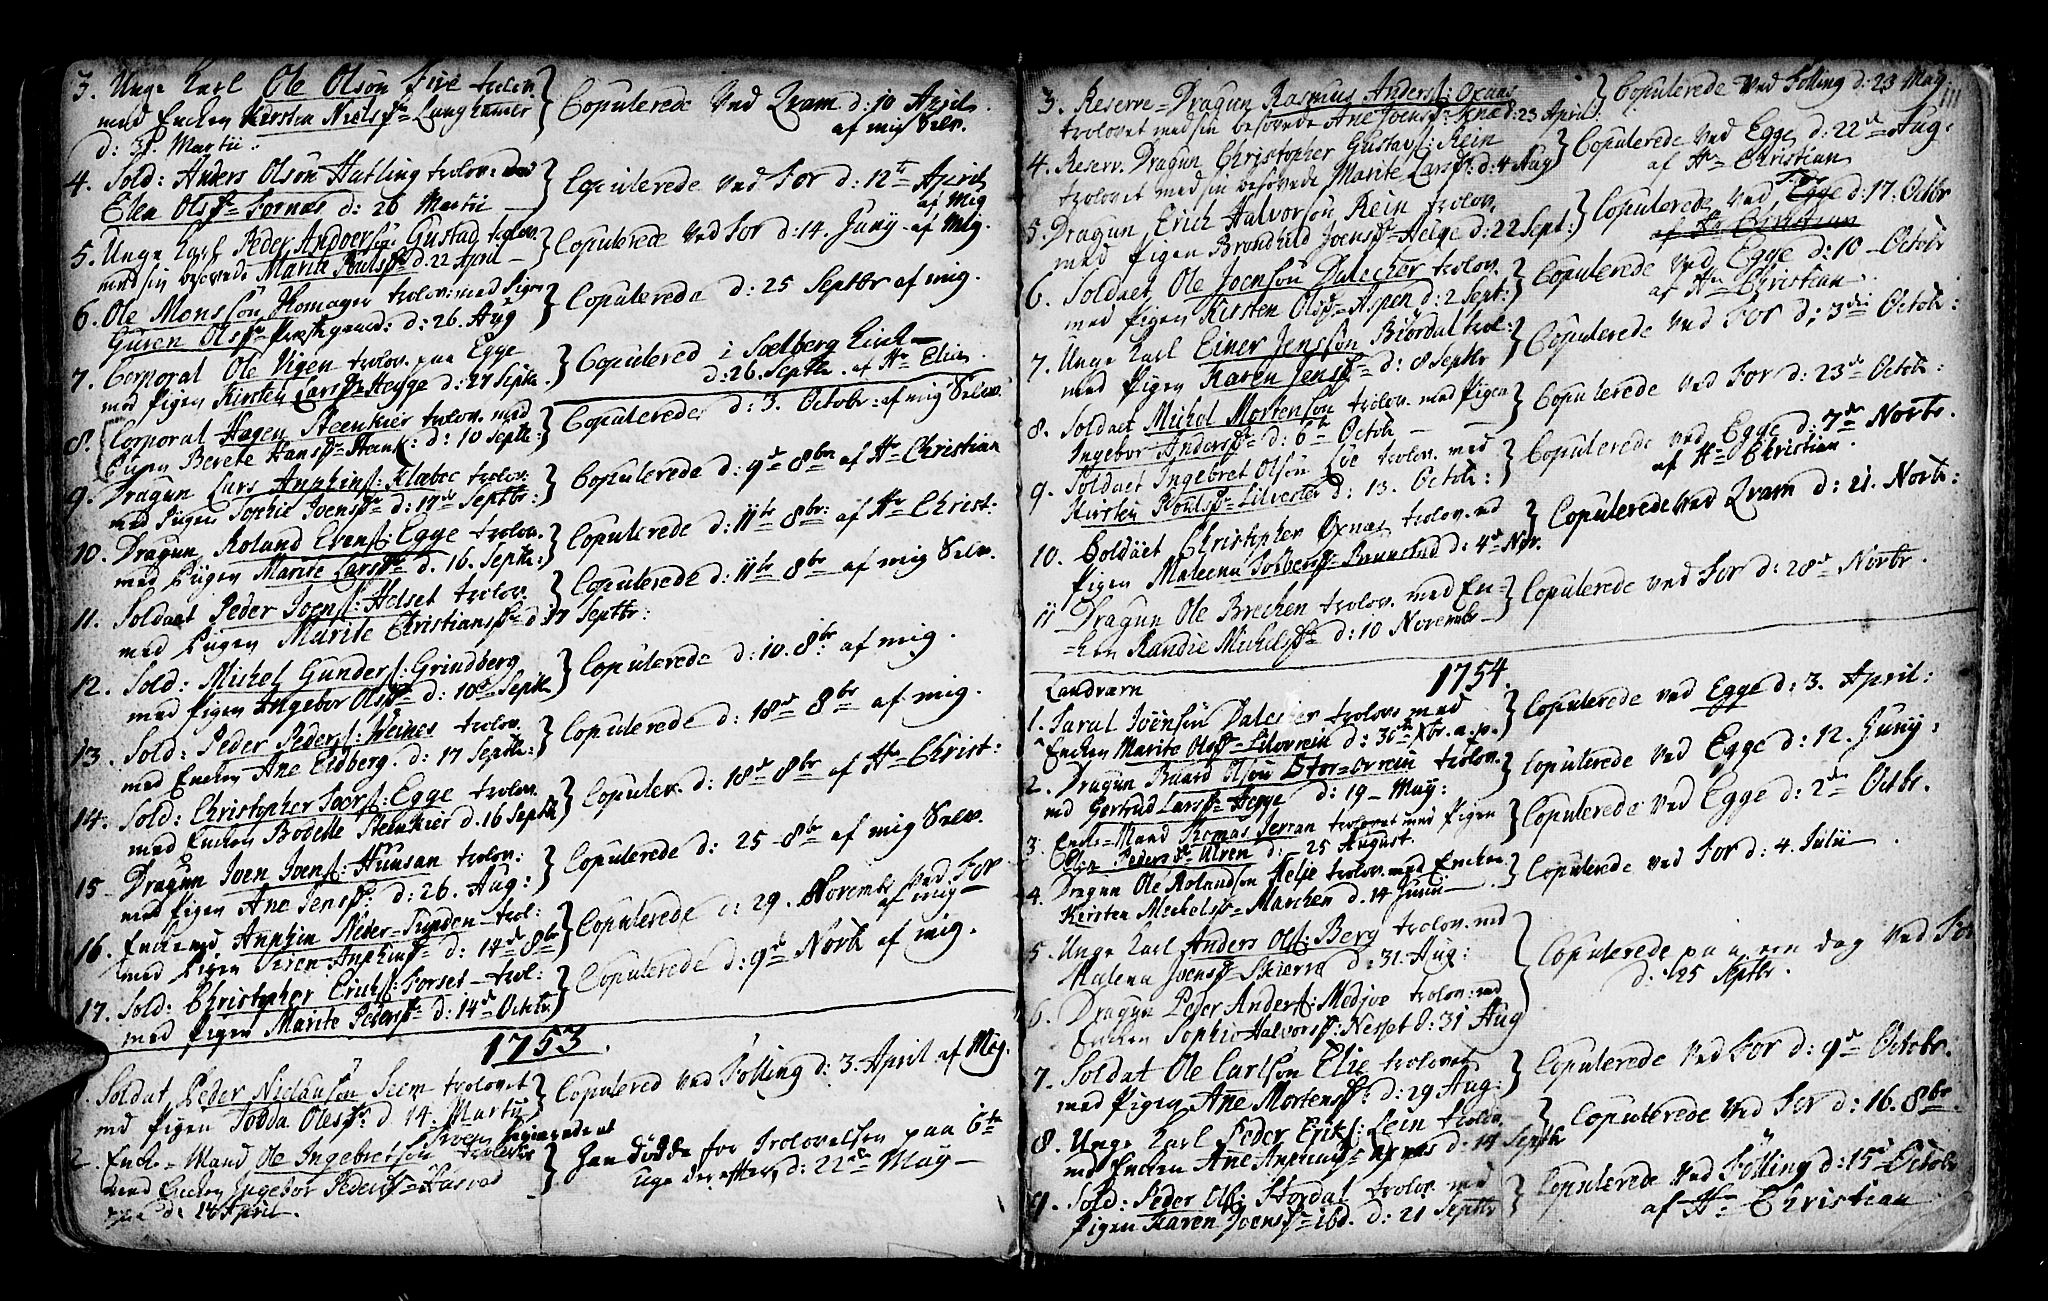 3. Unge Karl Ole Olsön Five trolov.
med Encken Kirstin Nielsdr Lunghammer
d: 31. Martii.
Copulerede ved Qvam d: 10 April
af mig Selv.
4. Sold: Anders Olsön Hatling trolov: med
Elen Olsdr Fornæs d: 26 Martii
Copulerede ved For d: 12te April
af Mig
5. Unge Karl Peder Andversön Gustad trolov.
med sin besovede Marit Poulsdr d. 22 April
Copulerede ved For d: 14. Juny af Mig.
6. Ole Monssön Homager trolov: med Pigen
Guren Olsdr Præstgaard: d: 26. Aug
Copulerede d: 25 Septbr af mig.
7. Corporal Ole Vigen trolov. paa Egge
med Pigen Kirsten Larsdr Hegge d: 27 Septbr.
Copulered i Soelberg Kirk
d: 26. Septbr. af Hr Elius
8. Corporal Hagen Steenkier trolov. med
Pigen Berete Hansdr d: 10 Septbr:
Copulerede d: 3. Octobr: af mig Selv.
9. Dragun Lars Anphins: Klæbec trolov:
med Pigen Sophie Joensdr d: 17de Septbr:
Copulerede d: 9de 8br af Hr Christian
10. Dragun Roland Evens: Egge trolov.
med Pigen Marite Larsdr d. 16. Septbr:
Copulerede d: 11te 8br: af Hr Christ:
11. Soldaet Peder Joens: Helset trolov.
med Pigen Marite Christiansdr d: 17 Septbr:
Copulerede d: 11te 8br af mig Selv.
12. Sold: Michel Gunders: Grindberg
med Pigen Ingebor Olsdr d: 10de Septbr
Copulerede d: 10. 8br af mig.
13. Sold: Peder Peders: Weines trolov.
med Encken Ane Eldberg. d: 17 Septbr:
Copulerede d: 18de 8br af mig.
14. Sold: Christopher Ivers: Egge trolov.
med Encken Bodelle Steenkier d. 16 Septbr
Copuler. d: 18de 8br af Hr Christ:
15 Dragun Joen Joens: Huusan trolov:
med Pigen Ane Jensdr: d: 26. Aug:
Copulerede d: 25 8br af mig Selv.
16. Enckemd Anphin Neder-Tunden trol:
med Pigen Siren Anphinsdr d: 14de 8br
Copulerede d: 29. Novembr ved For
af mig
17. Sold: Christopher Erichs: Forset trol:
med Pigen Marite Pedersdr d: 14de Octobr
Copulerede d: 9de Novbr af mig.
1753.
1. Soldat Peder Niclausön Seem trolovet
md Pigen Todda Olesdr. d. 14. Martii
Copulered ved Fölling d: 3. April af Mig.
2. Encke-Mand Ole Ingebretsön trolovet
med Encken Ingebor Pedersdr Aasved
d: 16 April.
Han döde for Trolovelsen paa 6te
Uge derefter, d: 22de May
111
3. Reserve-Dragun Rasmus Anders: Oxnæs
trolovet med sin besovede Ane Joensdr d: 23 April:
Copulerede ved Fölling d: 23 May.
4. Reserv. Dragun Christopher Gustavs: Rein
trolovet med sin besovede Marite Larsdr: d: 4 Aug
Copulerede ved Egge d: 22de Aug:
af Hr Christian
5. Dragun Erich Halvorsön Rein trolov.
med Pigen Brondhild Joensdr Helge d: 22 Sept:
Copulerede ved Egge d: 17. Octobr
For
af Hr Christian
6. Soldaet Ole Joensön Dalecher trolov.
med Pigen Kirsten Olsdr Aspen d: 2 Sept:
Copulerede ved Egge d: 10 Octobr
af Hr Christian
7. Unge Karl Einer Jenssön Biördal trol:
med Pigen Karen Jensdr d: 8 Septbr
Copulerede ved For d: 3die Octobr:
8. Soldaet Michel Mortensön trolov. med Pigen
Ingebor Andersdr d: 6te Octobr
Copulerede ved For d: 23de Octobr:
9. Soldaet Ingebret Olsön Löe trolov. med
Kirsten Poulsdr Silvester d: 13. Octobr:
Copulerede ved Egge d: 7de Novbr.
af Hr Christian.
10. Soldaet Christopher Oxnæs trolov. md
Pigen Maleena Solbersdr d: 4de Nov.
Copulerede ved Qvam d: 21. Novbr:
11 Dragun Ole Brechen trolov. med En-
ken Randie Michelsdr d: 10 Novembr
Copulerede ved For d: 28de Novbr.
1754.
Landværn
1. Saral Joensön Dalecher trolov. med
Encken Marite Olsdr d: 31te Xbr. a.p.
Copulerede ved Egge d: 3. April:
2. Dragun Baard Olsön Stor-Ovrein trolov.
md Gertrud Larsdr Hegge d: 19 May:
Copulerede ved Egge d: 12. Juny:
3 Encke-Mand Thomas Ferran trolovet med Pigen
Elen Pedersdr Ulven d: 25 August.
Copulerede ved Egge d: 2den Octbr.
4. Dragun Ole Rolandsön Helje trolov. med Encken
Kirsten Mechelsdr Marchen d. 14 Junii
Copulerede ved For d: 4. Julii
5 Unge Karl Anders Ols: Berg trolov. md
Malena Joensdr Skierve d: 31. Aug:
Copulerede paa een dag ved For
d: 25 Septbr.
6. Dragun Peder Anders: Medjoe trolov. md
Encken Sophie Halvorsdr: Nesset d: 31 Aug
7. Soldat Ole Carlsön Elie trolovet
med Pigen Ane Mortensdr d: 29 Aug:
Copulerede ved For d: 9de Octobr.
8. Unge Karl Peder Eriks: Lein trolov.
md Encken Ane d: 14 Septbr
Copulerede ved For d: 16. 8br.
9. Sold: Peder Ols: Stordal trolov. md
Pigen Karen Joensdr ibd. d: 21 Septbr
Copulerede ved Fölling d: 15de Octobr
af Hr Christian